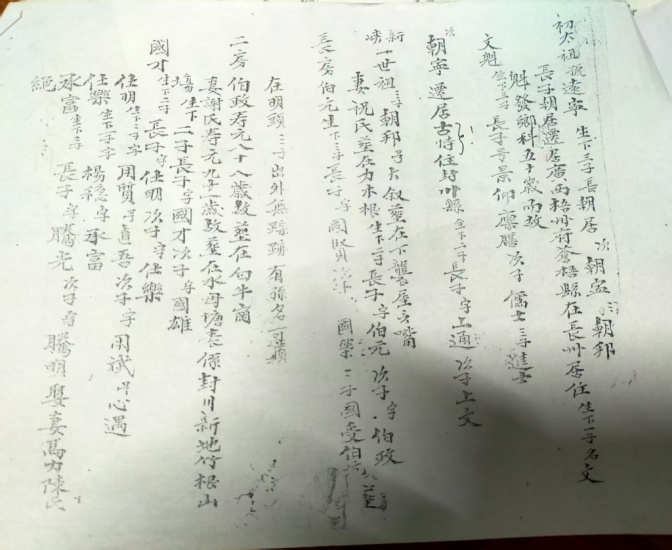 初太祖號遠寧 生下三子長朝居 次朝寧 三朝邦
長子朝居遷居廣西梧州府蒼梧縣在長州居住生下一子名文
魁發鄉科五十歲而故
文魁生下三子長子字景仰廩膳次子儒士三子進士
次朝寧遷居古特住封川縣生下二子長子字上通次子上文
一世祖三子朝邦号大叙葬在下龍古屋方嘴
妻祝氏葬在力木根生下二子長子字伯元次子字伯政
長房伯元生下三子長子字國賢次 國榮三子國
在明頭三子出外無踪跡有孫名
二房伯政寿元八十八歲葬在白牛崗
妻謝氏寿元九十一歲葬在水母塘表係封川新地竹根山
塲生下二子長子字國才次子字國雄
國才生下二子長子字任明次子字任樂
任明生下二子字用賢号直吾次子字用斌号心遇
任樂生下二子字楊穩字承富
承富生下二子長子字騰光次子字騰明娶妻馮力陳氏
絕